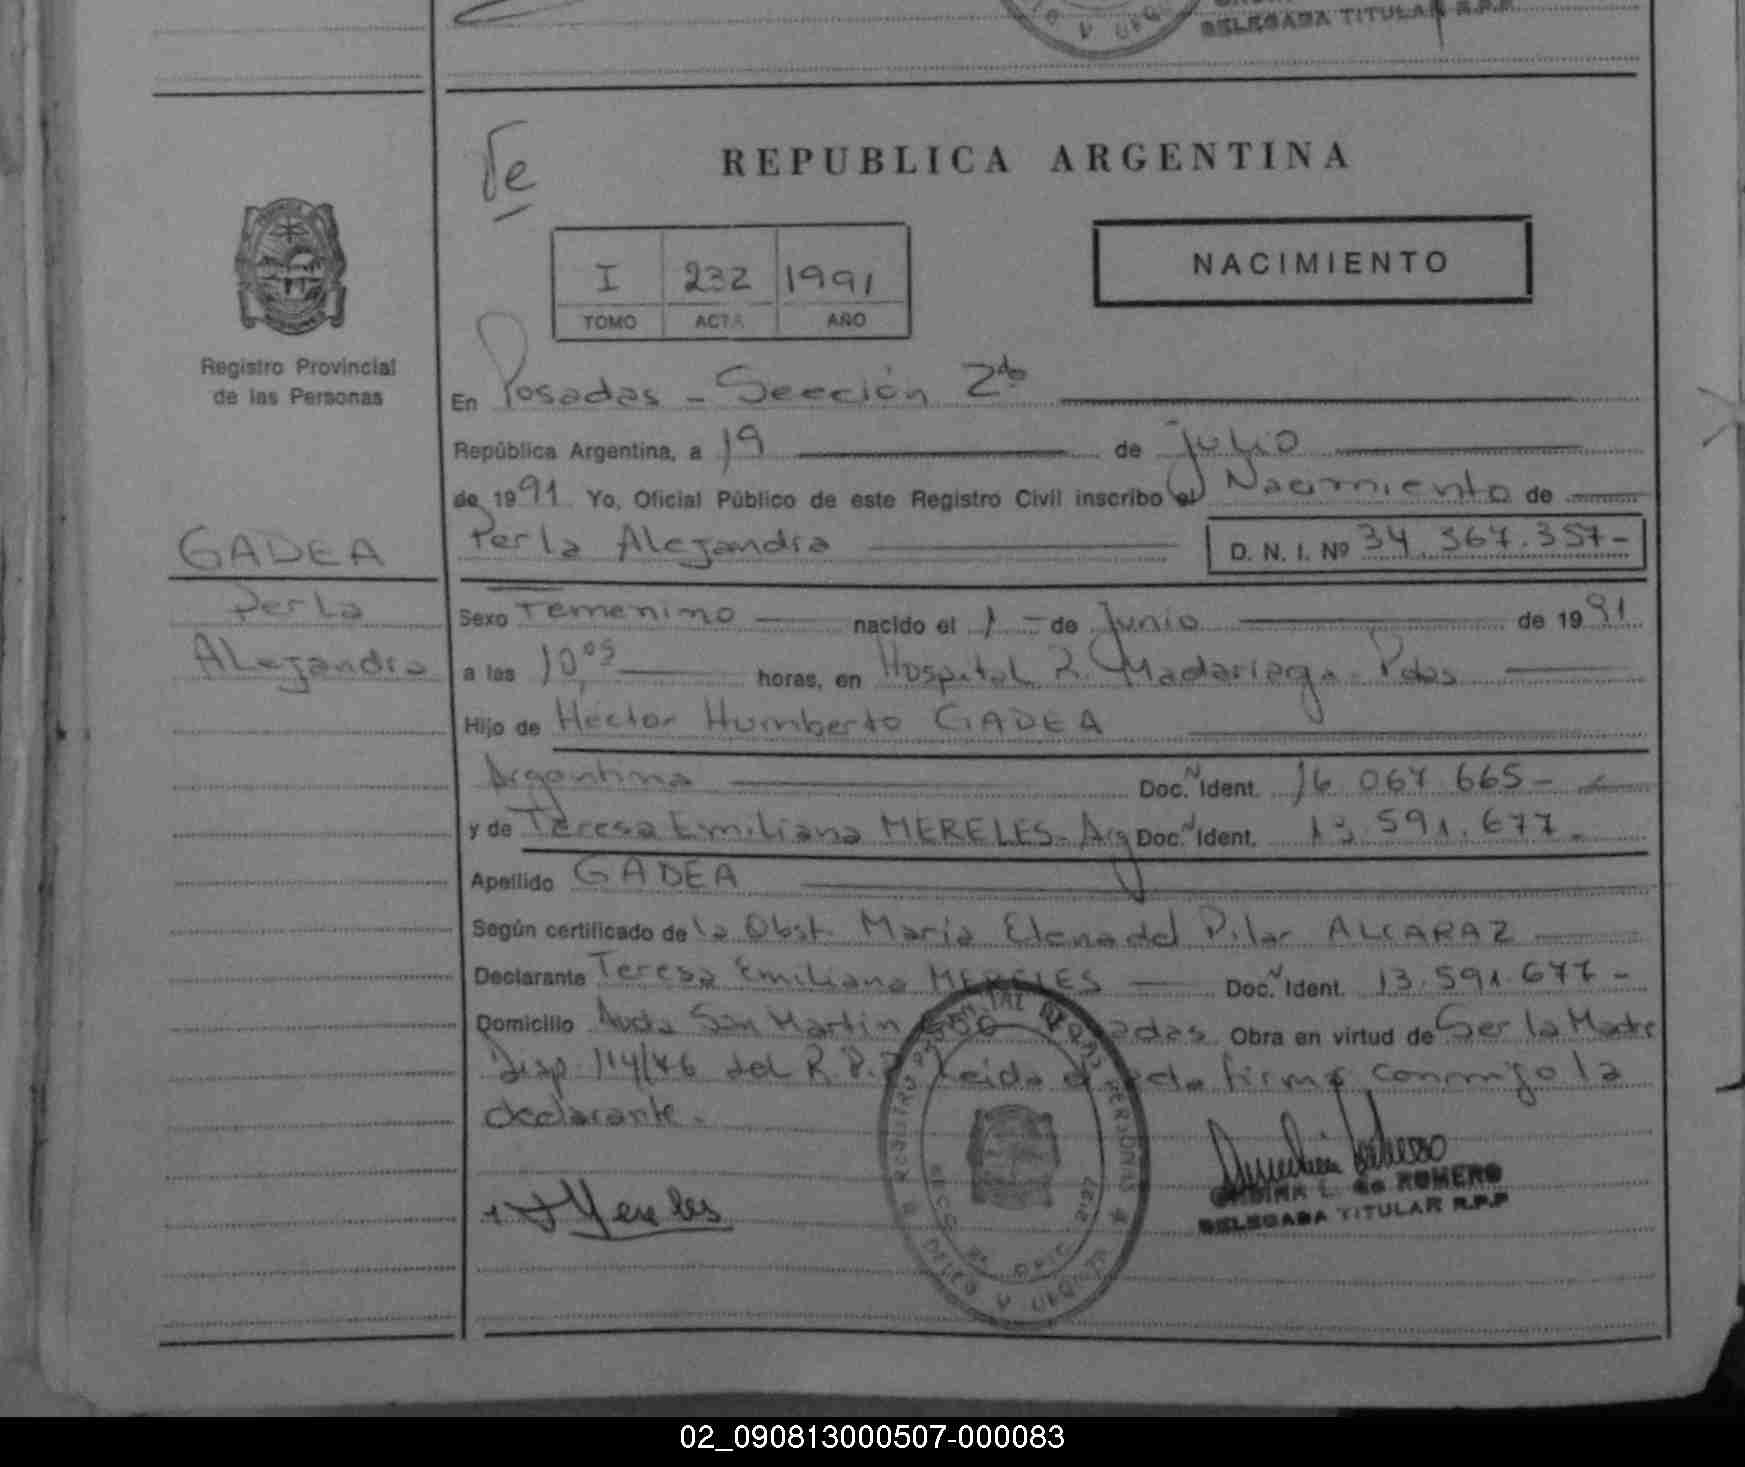 DELEGADA TITULAR R.P.P.
REPUBLICA ARGENTINA
NACIMIENTO
I 232 1991
TOMO ACTA AÑO
Registro Provincial
de las Personas
En Posadas - Sección 2da
República Argentina, a 19 de Julio
de 1991 Yo, Oficial Público de este Registro Civil inscribo el Nacimiento de
Perla Alejandra D. N. I. Nº 34.367.357-
GADEA
Perla
Alejandra
Sexo Femenino nacido el 1 - de Junio de 1991
a las 10,05 horas, en Hospital R. Madariaga - Pdas
Hijo de Hector Humberto GADEA
Argentina Doc. N Ident. 16.067.665-
y de Teresa Emiliana MERELES - Arg Doc. N Ident. 13.591.677-
Apellido GADEA
Según certificado de la Obst. María Elena del Pilar ALCARAZ
Declarante Teresa Emiliana MERELES Doc. N Ident. 13.591.677-
Domicilio Avda San Martín Posadas Obra en virtud de Ser la Madre
Disp. 114/46 del R.P.P. Leida el acta firma conmigo la
declarante.-
Mereles
DE ROMERO
DELEGADA TITULAR R.P.P
02_090813000507-000083